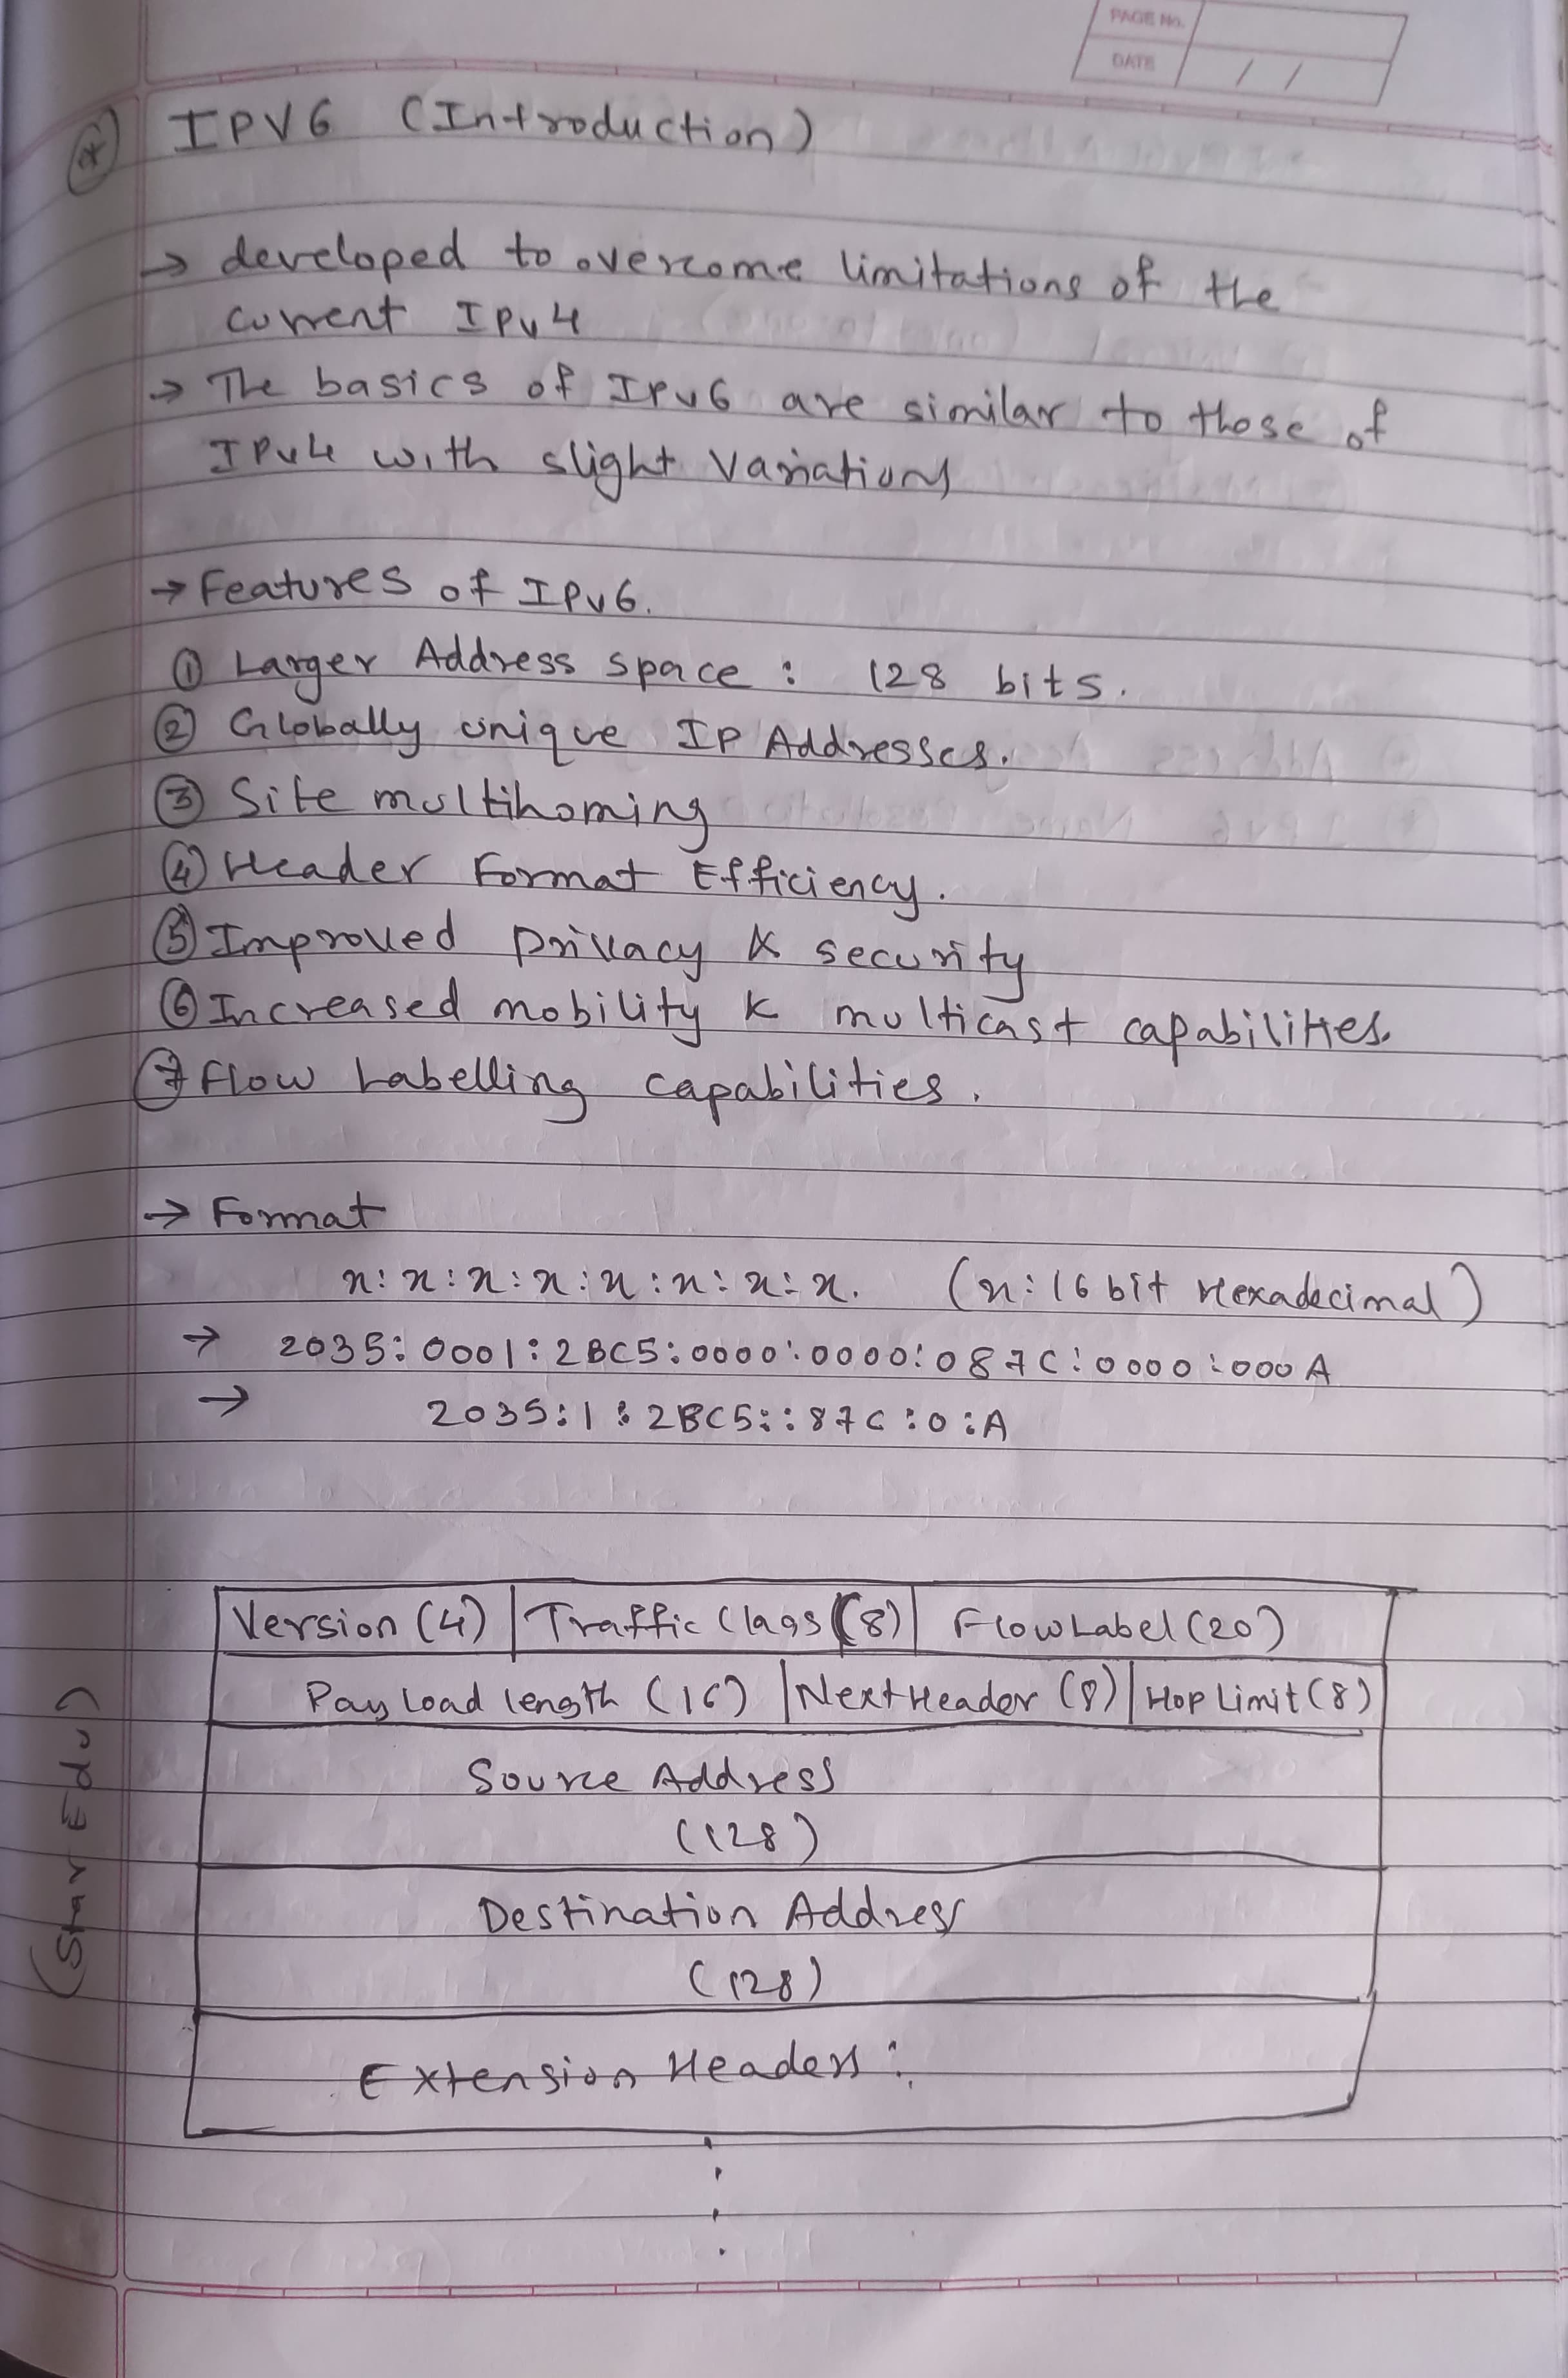 PAGE No.
DATE / /
* IPV6 (Introduction)
→ developed to overcome limitations of the
current IPv4
→ The basics of IPv6 are similar to those of
IPv4 with slight variations
→ Features of IPv6.
① Larger Address space : 128 bits.
② Globally unique IP Addresses.
③ Site multihoming
④ Header Format Efficiency.
⑤ Improved privacy & security
⑥ Increased mobility & multicast capabilities.
⑦ Flow Labelling capabilities.
→ Format
x:x:x:x:x:x:x:x. (x:16 bit Hexadecimal)
→ 2035:0001:2BC5:0000:0000:087C:0000:000A
→ 2035:1:2BC5::87C:0:A
Version (4) | Traffic Class (8) | Flow Label (20)
Payload length (16) | Next Header (8) | Hop Limit (8)
Source Address
(128)
Destination Address
(128)
Extension Headers :
(Star Edu)